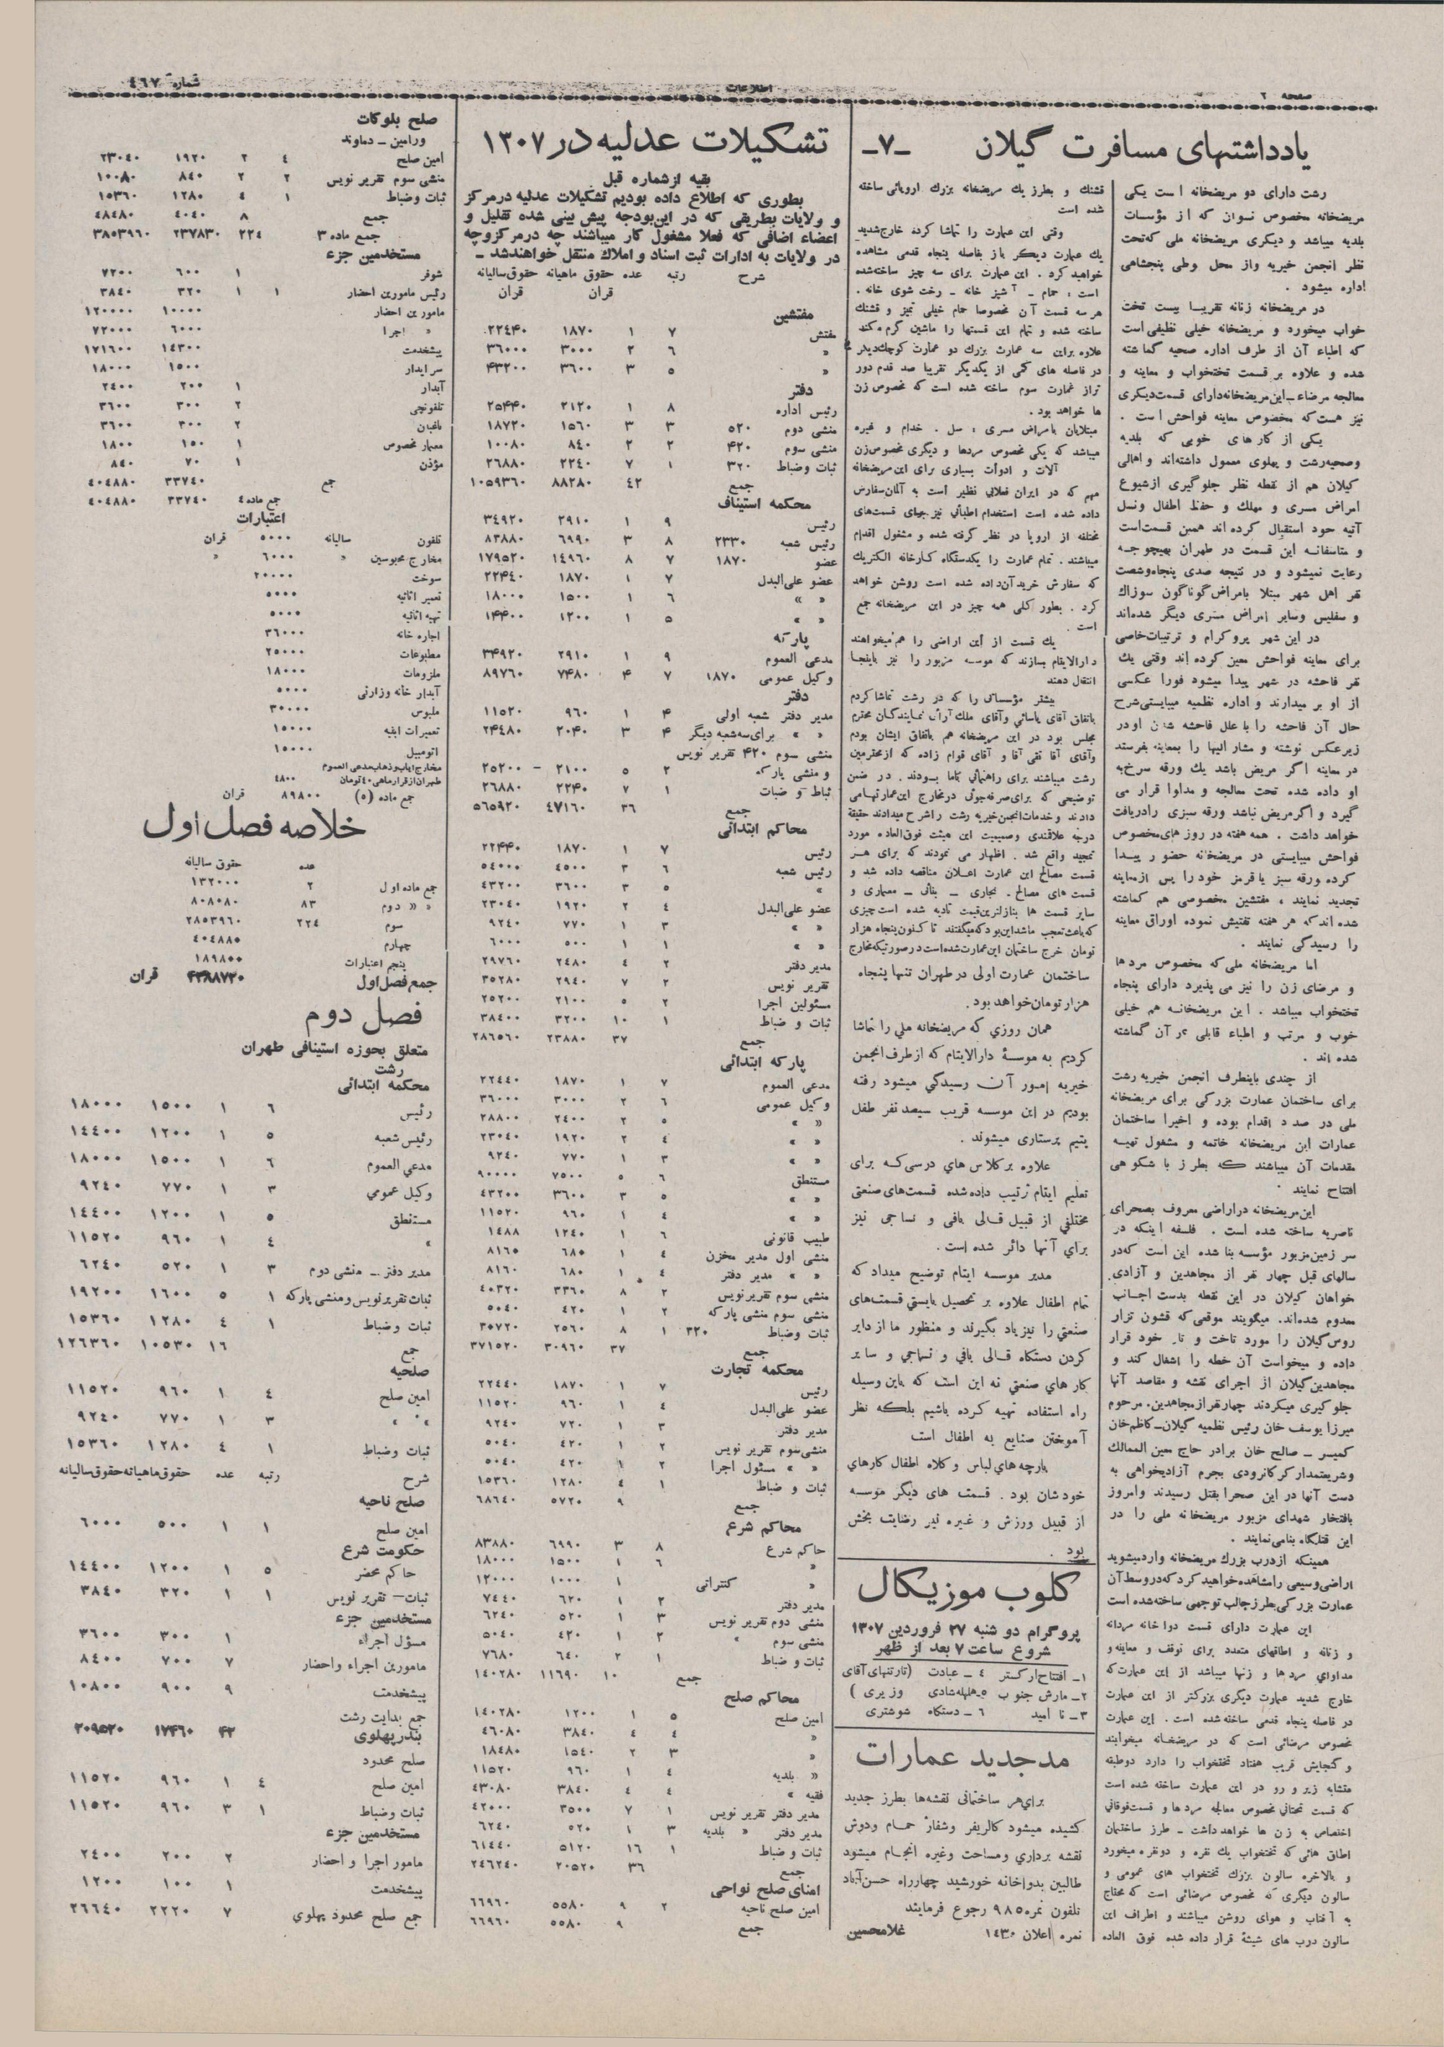 صفحه ۲
اطلاعات
شماره ٤٦٧
یادداشتهای مسافرت گیلان
ـ۷ـ
رشت دارای دو مریضخانه است یکی
مریضخانه مخصوص نسوان که از مؤسسات
بلدیه میباشد و دیگری مریضخانه ملی که تحت
نظر انجمن خیریه واز محل وطی پنجشاهی
اداره میشود .
در مریضخانه زنانه تقریبا بیست تخت
خواب میخورد و مریضخانه خیلی نظیفی است
که اطباء آن از طرف اداره صحیه گماشته
شده و علاوه بر قسمت تختخواب و معاینه و
معالجه مرضاء ـ این مریضخانه دارای قسمت دیگری
نیز هست که مخصوص معاینه فواحش است .
یکی از کارهای خوبی که بلدیه
وصحیه رشت و پهلوی معمول داشته‌اند و اهالی
گیلان هم از نقطه نظر جلوگیری از شیوع
امراض مسری و مهلك و حفظ اطفال ونسل
آتیه خود استقبال کرده اند همین قسمت است
و متاسفانه این قسمت در طهران بهیچوجه
رعایت نمیشود و در نتیجه صدی پنجاه وشصت
نفر اهل شهر مبتلا بامراض گوناگون سوزاك
و سفلیس وسایر امراض مسری دیگر شده‌اند
در این شهر پروگرام و ترتیبات خاصی
برای معاینه فواحش معین کرده اند وقتی یك
نفر فاحشه در شهر پیدا میشود فورا عکسی
از او بر میدارند و اداره نظمیه میبایستی شرح
حال آن فاحشه را با علل فاحشه شدن او در
زیر عکس نوشته و مشار الیها را بمعاینه بفرستد
در معاینه اگر مریض باشد یك ورقه سرخ به
او داده شده تحت معالجه و مداوا قرار می
گیرد و اگر مریض نباشد ورقه سبزی را دریافت
خواهد داشت . همه هفته در روز های مخصوص
فواحش میبایستی در مریضخانه حضور پیدا
کرده ورقه سبز یا قرمز خود را پس از معاینه
تجدید نمایند ، مفتشین مخصوصی هم گماشته
شده اند که هر هفته تفتیش نموده اوراق معاینه
را رسیدگی نمایند .
اما مریضخانه ملی که مخصوص مردها
و مرضای زن را نیز می پذیرد دارای پنجاه
تختخواب میباشد . این مریضخانه هم خیلی
خوب و مرتب و اطباء قابلی در آن گماشته
شده اند .
از چندی باینطرف انجمن خیریه رشت
برای ساختمان عمارت بزرگی برای مریضخانه
ملی در صدد اقدام بوده و اخیرا ساختمان
عمارات این مریضخانه خاتمه و مشغول تهیه
مقدمات آن میباشند که بطرز با شکوهی
افتتاح نمایند .
این مریضخانه در اراضی معروف بصحرای
ناصریه ساخته شده است . فلسفه اینکه در
سر زمین مزبور مؤسسه بنا شده این است که در
سالهای قبل چهار نفر از مجاهدین و آزادی
خواهان گیلان در این نقطه بدست اجانب
معدوم شده‌اند. میگویند موقعی که قشون تزار
روس گیلان را مورد تاخت و تاز خود قرار
داده و میخواست آن خطه را اشغال کند و
مجاهدین گیلان از اجرای نقشه و مقاصد آنها
جلوگیری میکردند چهار نفر از مجاهدین. مرحوم
میرزا یوسف خان رئیس نظمیه گیلان ـ کاظم خان
کمیسر ـ صالح خان برادر حاج معین الممالك
وشریعتمدار کرکانرودی بجرم آزادیخواهی به
دست آنها در این صحرا بقتل رسیدند وامروز
بافتخار شهدای مزبور مریضخانه ملی را در
این قتلگاه بنا می‌نمایند .
همینکه از درب بزرك مریضخانه وارد میشوید
اراضی وسیعی را مشاهده خواهید کرد که در وسط آن
عمارت بزرگی بطرز جالب توجهی ساخته شده است
این عمارت دارای قسمت دوا خانه مردانه
و زنانه و اطاقهای متعدد برای توقف و معاینه و
مداوای مردها و زنها میباشد از این عمارت که
خارج شدید عمارت دیگری بزرگتر از این عمارت
در فاصله پنجاه قدمی ساخته شده است . این عمارت
مخصوص مرضائی است که در مریضخانه میخوابند
و گنجایش قریب هفتاد تختخواب را دارد دوطبقه
متشابه زیر و رو در این عمارت ساخته شده است
که قسمت تحتانی مخصوص معالجه مردها و قسمت فوقانی
اختصاص به زن ها خواهد داشت ـ طرز ساختمان
اطاق هائی که تختخواب یك نفره و دونفره میخورد
و بالاخره سالون بزرك تختخواب های عمومی و
سالون دیگری که مخصوص مرضائی است که محتاج
به آفتاب و هوای روشن میباشند و اطراف این
سالون درب های شیشهٔ قرار داده شده فوق العاده
قشنك و بطرز یك مریضخانه بزرك اروپائی ساخته
شده است
وقتی این عمارت را تماشا کرده خارج شدید
یك عمارت دیگر باز بفاصله پنجاه قدمی مشاهده
خواهید کرد . این عمارت برای سه چیز ساخته شده
است : حمام ـ آشپز خانه ـ رخت شوی خانه .
هر سه قسمت آن مخصوصا حمام خیلی تمیز و قشنك
ساخته شده و تمام این قسمتها را ماشین گرم میکند
علاوه براین سه عمارت بزرك دو عمارت کوچك دیگر
در فاصله های کمی از یکدیگر تقریبا صد قدم دور
تراز عمارت سوم ساخته شده است که مخصوص زن
ها خواهد بود .
مبتلایان بامراض مسری : سل . خدام و غیره
میباشد که یکی مخصوص مردها و دیگری مخصوص زن
آلات و ادوات بسیاری برای این مریضخانه
مهم که در ایران فعلابی نظیر است به آلمان سفارش
داده شده است استخدام اطبائی نیز بجهای قسمت‌های
مختلفه از اروپا در نظر گرفته شده و مشغول اقدام
میباشند . تمام عمارت را یکدستگاه کارخانه الکتریك
که سفارش خرید آن داده شده است روشن خواهد
کرد . بطور کلی همه چیز در این مریضخانه جمع
است .
یك قسمت از این اراضی را هم میخواهند
دارالایتام بسازند که موسسه مزبور را نیز باینجا
انتقال دهند
بیشتر مؤسساتی را که در رشت تماشا کردم
باتفاق آقای یاسائی وآقای ملك آرائی نمایندگان محترم
مجلس بود در این مریضخانه هم باتفاق ایشان بودم
وآقای آقا تقی آقا و آقای قوام زاده که از محترمین
رشت میباشند برای راهنمائی کاما بودند . در ضمن
توضیحی که برای صرفه جوئی در مخارج این عمارتها می
دادند و خدمات انجمن خیریه رشت را شرح میدادند حقیقة
درجه علاقمندی وصمیمیت این هیئت فوق العاده مورد
تمجید واقع شد . اظهار می نمودند که برای هر
قسمت مصالح این عمارت اعلان مناقصه داده شد و
قسمت های مصالح . نجاری ـ بنائی ـ معماری و
سایر قسمت ها بنازلترین قیمت تادیه شده است چیزی
که باعث تعجب ما شد این بود که میگفتند تا کنون پنجاه هزار
تومان خرج ساختمان این عمارت شده است در صورتیکه مخارج
ساختمان عمارت اولی در طهران تنها پنجاه
هزار تومان خواهد بود .
همان روزی که مریضخانه ملی را تماشا
کردیم به موسسهٔ دارالایتام که از طرف انجمن
خیریه امور آن رسیدگی میشود رفته
بودیم در این موسسه قریب سیصد نفر طفل
یتیم پرستاری میشوند .
علاوه بر کلاس های درسی که برای
تعلیم ایتام ترتیب داده شده قسمت‌های صنعتی
مختلفی از قبیل قالی بافی و نساجی نیز
برای آنها دائر شده است .
مدیر موسسه ایتام توضیح میداد که
تمام اطفال علاوه بر تحصیل بایستی قسمت‌های
صنعتی را نیز یاد بگیرند و منظور ما از دایر
کردن دستگاه قالی بافی و نساجی و سایر
کارهای صنعتی نه این است که باین وسیله
راه استفاده تهیه کرده باشیم بلکه نظر
آموختن صنایع به اطفال است
پارچه های لباس و کلاه اطفال کارهای
خودشان بود . قسمت های دیگر موسسه
از قبیل ورزش و غیره نیز رضایت بخش
بود .
کلوب موزیکال
پروگرام دو شنبه ۲۷ فروردین ۱۳۰۷
شروع ساعت ۷ بعد از ظهر
۱ـ افتتاح ارکستر ٤ ـ عبادت (تارتنهای آقای
۲ـ مارش جنوب ٥ـ هلهله شادی وزیری )
۳ـ نا امید ٦ ـ دستگاه شوشتری
مد جدید عمارات
برای هر ساختمانی نقشه‌ها بطرز جدید
کشیده میشود کالریفر وشفاژ حمام ودوش
نقشه برداری ومساحت وغیره انجام میشود
طالبین بدواخانه خورشید چهارراه حسن آباد
تلفون نمره ۹۸٥ رجوع فرمایند
نمره اعلان ۱٤۳۰ غلامحسین
تشکیلات عدلیه در ۱۳۰۷
بقیه از شماره قبل
بطوری که اطلاع داده بودیم تشکیلات عدلیه در مرکز
و ولایات بطریقی که در این بودجه پیش بینی شده تقلیل و
اعضاء اضافی که فعلا مشغول کار میباشند چه در مرکز وچه
در ولایات به ادارات ثبت اسناد و املاك منتقل خواهند شد ـ
شرح رتبه عده حقوق ماهیانه حقوق سالیانه
قران قران
مفتشین
مفتش ۷ ۱ ۱۸۷۰ ۲۲٤٤۰
» ٦ ۲ ۳۰۰۰ ۳٦۰۰۰
» ٥ ۳ ۳٦۰۰ ٤۳۲۰۰
دفتر
رئیس اداره ۸ ۱ ۲۱۲۰ ۲٥٤٤۰
منشی دوم ٥۲۰ ۳ ۳ ۱٥٦۰ ۱۸۷۲۰
منشی سوم ٤۲۰ ۲ ۲ ۸٤۰ ۱۰۰۸۰
ثبات وضباط ۳۲۰ ۱ ۷ ۲۲٤۰ ۲٦۸۸۰
جمع ٤۲ ۸۸۲۸۰ ۱۰٥۹۳٦۰
محکمه استیناف
رئیس ۹ ۱ ۲۹۱۰ ۳٤۹۲۰
رئیس شعبه ۲۳۳۰ ۸ ۳ ٦۹۹۰ ۸۳۸۸۰
عضو ۱۸۷۰ ۷ ۸ ۱٤۹٦۰ ۱۷۹٥۲۰
عضو علی‌البدل ۷ ۱ ۱۸۷۰ ۲۲٤٤۰
» » ٦ ۱ ۱٥۰۰ ۱۸۰۰۰
» » ٥ ۱ ۱۲۰۰ ۱٤٤۰۰
پارکه
مدعی العموم ۹ ۱ ۲۹۱۰ ۳٤۹۲۰
وکیل عمومی ۱۸۷۰ ۷ ٤ ۷٤۸۰ ۸۹۷٦۰
دفتر
مدیر دفتر شعبه اولی ٤ ۱ ۹٦۰ ۱۱٥۲۰
» » برای سه شعبه دیگر ٤ ۳ ۲۰٤۰ ۲٤٤۸۰
منشی سوم ٤۲۰ تقریر نویس
و منشی پارکه ۲ ٥ ۲۱۰۰ ـ ۲٥۲۰۰
ثباط و ضبات ۱ ۷ ۲۲٤۰ ۲٦۸۸۰
جمع ۳٦ ٤۷۱٦۰ ٥٦٥۹۲۰
محاکم ابتدائی
رئیس ۷ ۱ ۱۸۷۰ ۲۲٤٤۰
رئیس شعبه ٦ ۳ ٤٥۰۰ ٥٤۰۰۰
» ٥ ۳ ۳٦۰۰ ٤۳۲۰۰
عضو علی‌البدل ٤ ۲ ۱۹۲۰ ۲۳۰٤۰
» » ۳ ۱ ۷۷۰ ۹۲٤۰
» » ۱ ۱ ٥۰۰ ٦۰۰۰
مدیر دفتر ۲ ٤ ۲٤۸۰ ۲۹۷٦۰
تقریر نویس ۲ ۷ ۲۹٤۰ ۳٥۲۸۰
مسئولین اجرا ۲ ٥ ۲۱۰۰ ۲٥۲۰۰
ثبات و ضباط ۱ ۱۰ ۳۲۰۰ ۳۸٤۰۰
جمع ۳۷ ۲۳۸۸۰ ۲۸٦٥٦۰
پارکه ابتدائی
مدعی العموم ۷ ۱ ۱۸۷۰ ۲۲٤٤۰
وکیل عمومی ٦ ۲ ۳۰۰۰ ۳٦۰۰۰
» » ٥ ۲ ۲٤۰۰ ۲۸۸۰۰
» » ٤ ۲ ۱۹۲۰ ۲۳۰٤۰
» » ۳ ۱ ۷۷۰ ۹۲٤۰
مستنطق ٦ ٥ ۷٥۰۰ ۹۰۰۰۰
» » ٥ ۳ ۳٦۰۰ ٤۳۲۰۰
» » ٤ ۱ ۹٦۰ ۱۱٥۲۰
طبیب قانونی ٦ ۱ ۱۲٤۰ ۱٤۸۸
منشی اول مدیر مخزن ٤ ۱ ٦۸۰ ۸۱٦٥
» » مدیر دفتر ٤ ۱ ٦۸۰ ۸۱٦۰
منشی سوم تقریرنویس ۲ ۸ ۳۳٦۰ ٤۰۳۲۰
منشی سوم منشی پارکه ۲ ۱ ٤۲۰ ٥۰٤۰
ثبات وضباط ۳۲۰ ۱ ۸ ۲٥٦۰ ۳۰۷۲۰
جمع ۳۷ ۳۰۹٦۰ ۳۷۱٥۲۰
محکمه تجارت
رئیس ۷ ۱ ۱۸۷۰ ۲۲٤٤۰
عضو علی‌البدل ٤ ۱ ۹٦۰ ۱۱٥۲۰
مدیر دفتر ۳ ۱ ۷۲۰ ۹۲٤۰
منشی سوم تقریر نویس ۲ ۱ ٤۲۰ ٥۰٤۰
» » مسئول اجرا ۲ ۱ ٤۲۰ ٥۰٤۰
ثبات و ضباط ۱ ٤ ۱۲۸۰ ۱٥۳٦۰
جمع ۹ ٥۷۲۰ ٦۸٦٤۰
محاکم شرع
حاکم شرع ۸ ۳ ٦۹۹۰ ۸۳۸۸۰
» ٦ ۱ ۱٥۰۰ ۱۸۰۰۰
» کنتراتی ۱ ۱۰۰۰ ۱۲۰۰۰
مدیر دفتر ۲ ۱ ٦۲۰ ۷٤٤۰
منشی دوم تقریر نویس ۳ ۱ ٥۲۰ ٦۲٤۰
منشی سوم » ۲ ۱ ٤۲۰ ٥۰٤۰
ثبات و ضباط ۱ ۲ ٦٤۰ ۷٦۸۰
جمع ۱۰ ۱۱٦۹۰ ۱٤۰۲۸۰
محاکم صلح
امین صلح ٥ ۱ ۱۲۰۰ ۱٤۰۲۸۰
» ٤ ٤ ۳۸٤۰ ٤٦۰۸۰
» ۳ ۲ ۱٥٤۰ ۱۸٤۸۰
» بلدیه ٤ ۱ ۹٦۰ ۱۱٥۲۰
فقیه » ٤ ٤ ۳۸٤۰ ٤۳۰۸۰
مدیر دفتر تقریر نویس ۱ ۷ ۳٥۰۰ ٤۲۰۰۰
مدیر دفتر » بلدیه ۳ ۱ ٥۲۰ ٦۲٤۰
ثبات و ضباط ۱ ۱٦ ٥۱۲۰ ٦۱٤٤۰
جمع ۳٦ ۲۰٥۲۰ ۲٤٦۲٤۰
امنای صلح نواحی
امین صلح ناحیه ۲ ۹ ٥٥۸۰ ٦٦۹٦۰
جمع ۹ ٥٥۸۰ ٦٦۹٦۰
صلح بلوکات
ورامین ـ دماوند
امین صلح ٤ ۲ ۱۹۲۰ ۲۳۰٤۰
منشی سوم تقریر نویس ۲ ۲ ۸٤۰ ۱۰۰۸۰
ثبات وضباط ۱ ٤ ۱۲۸۰ ۱٥۳٦۰
جمع ۸ ٤۰٤۰ ٤۸٤۸۰
جمع ماده ۳ ۲۲٤ ۲۳۷۸۳۰ ۳۸٥۳۹٦۰
مستخدمین جزء
شوفر ۱ ٦۰۰ ۷۲۰۰
رئیس مامورین احضار ۱ ۱ ۳۲۰ ۳۸٤۰
مامورین احضار ۱۰۰۰۰ ۱۲۰۰۰۰
» اجرا ٦۰۰۰ ۷۲۰۰۰
پیشخدمت ۱٤۳۰۰ ۱۷۱٦۰۰
سرایدار ۱٥۰۰ ۱۸۰۰۰
آبدار ۱ ۲۰۰ ۲٤۰۰
تلفونچی ۲ ۳۰۰ ۳٦۰۰
باغبان ۲ ۳۰۰ ۳٦۰۰
معمار مخصوص ۱ ۱٥۰ ۱۸۰۰
مؤذن ۱ ۷۰ ۸٤۰
جمع ۳۳۷٤۰ ٤۰٤۸۸۰
جمع ماده ٤ ۳۳۷٤۰ ٤۰٤۸۸۰
اعتبارات
تلفون سالیانه ٥۰۰۰ قران
مخارج محبوسین » ٦۰۰۰ »
سوخت ۲۰۰۰۰
تعمیر اثاثیه ٥۰۰۰
تهیه اثاثیه ٥۰۰۰
اجاره خانه ۳٦۰۰۰
مطبوعات ۲٥۰۰۰
ملزومات ۱۸۰۰۰
آبدار خانه وزارتی ٥۰۰۰
ملبوس ۳۰۰۰۰
تعمیرات ابنیه ۱٥۰۰۰
اتومبیل ۱٥۰۰۰
مخارج ایاب وذهاب مدعی العموم
طهران از قرار ماهی ٤۰ تومان ٤۸۰۰
جمع ماده (٥) ۸۹۸۰۰ قران
خلاصه فصل اول
عده حقوق سالیانه
جمع ماده اول ۲ ۱۳۲۰۰۰
» » دوم ۸۳ ۸۰۸۰۸۰
سوم ۲۲٤ ۲۸٥۳۹٦۰
چهارم ٤۰٤۸۸۰
پنجم اعتبارات ۱۸۹۸۰۰
جمع فصل اول قران
فصل دوم
متعلق بحوزه استینافی طهران
رشت
محکمه ابتدائی
رئیس ٦ ۱ ۱٥۰۰ ۱۸۰۰۰
رئیس شعبه ٥ ۱ ۱۲۰۰ ۱٤٤۰۰
مدعی العموم ٦ ۱ ۱٥۰۰ ۱۸۰۰۰
وکیل عمومی ۳ ۱ ۷۷۰ ۹۲٤۰
مستنطق ٥ ۱ ۱۲۰۰ ۱٤٤۰۰
» ٤ ۱ ۹٦۰ ۱۱٥۲۰
مدیر دفتر ـ منشی دوم ۳ ۱ ٥۲۰ ٦۲٤۰
ثبات تقریر نویس ومنشی پارکه ۱ ٥ ۱٦۰۰ ۱۹۲۰۰
ثبات وضباط ۱ ٤ ۱۲۸۰ ۱٥۳٦۰
جمع ۱٦ ۱۰٥۳۰ ۱۲٦۳٦۰
صلحیه
امین صلح ٤ ۱ ۹٦۰ ۱۱٥۲۰
» » ۳ ۱ ۷۷۰ ۹۲٤۰
ثبات وضباط ۱ ٤ ۱۲۸۰ ۱٥۳٦۰
شرح رتبه عده حقوق ماهیانه حقوق سالیانه
صلح ناحیه
امین صلح ۱ ۱ ٥۰۰ ٦۰۰۰
حکومت شرع
حاکم محضر ٥ ۱ ۱۲۰۰ ۱٤٤۰۰
ثبات ـ تقریر نویس ۱ ۱ ۳۲۰ ۳۸٤۰
مستخدمین جزء
مسؤل اجراء ۱ ۳۰۰ ۳٦۰۰
مامورین اجراء واحضار ۷ ۷۰۰ ۸٤۰۰
پیشخدمت ۹ ۹۰۰ ۱۰۸۰۰
جمع بدایت رشت ٤۲ ۱۷٤٦۰ ۲۰۹٥۲۰
بندر پهلوی
صلح محدود
امین صلح ٤ ۱ ۹٦۰ ۱۱٥۲۰
ثبات وضباط ۱ ۳ ۹٦۰ ۱۱٥۲۰
مستخدمین جزء
مامور اجرا و احضار ۲ ۲۰۰ ۲٤۰۰
پیشخدمت ۱ ۱۰۰ ۱۲۰۰
جمع صلح محدود پهلوی ۷ ۲۲۲۰ ۲٦٦٤۰